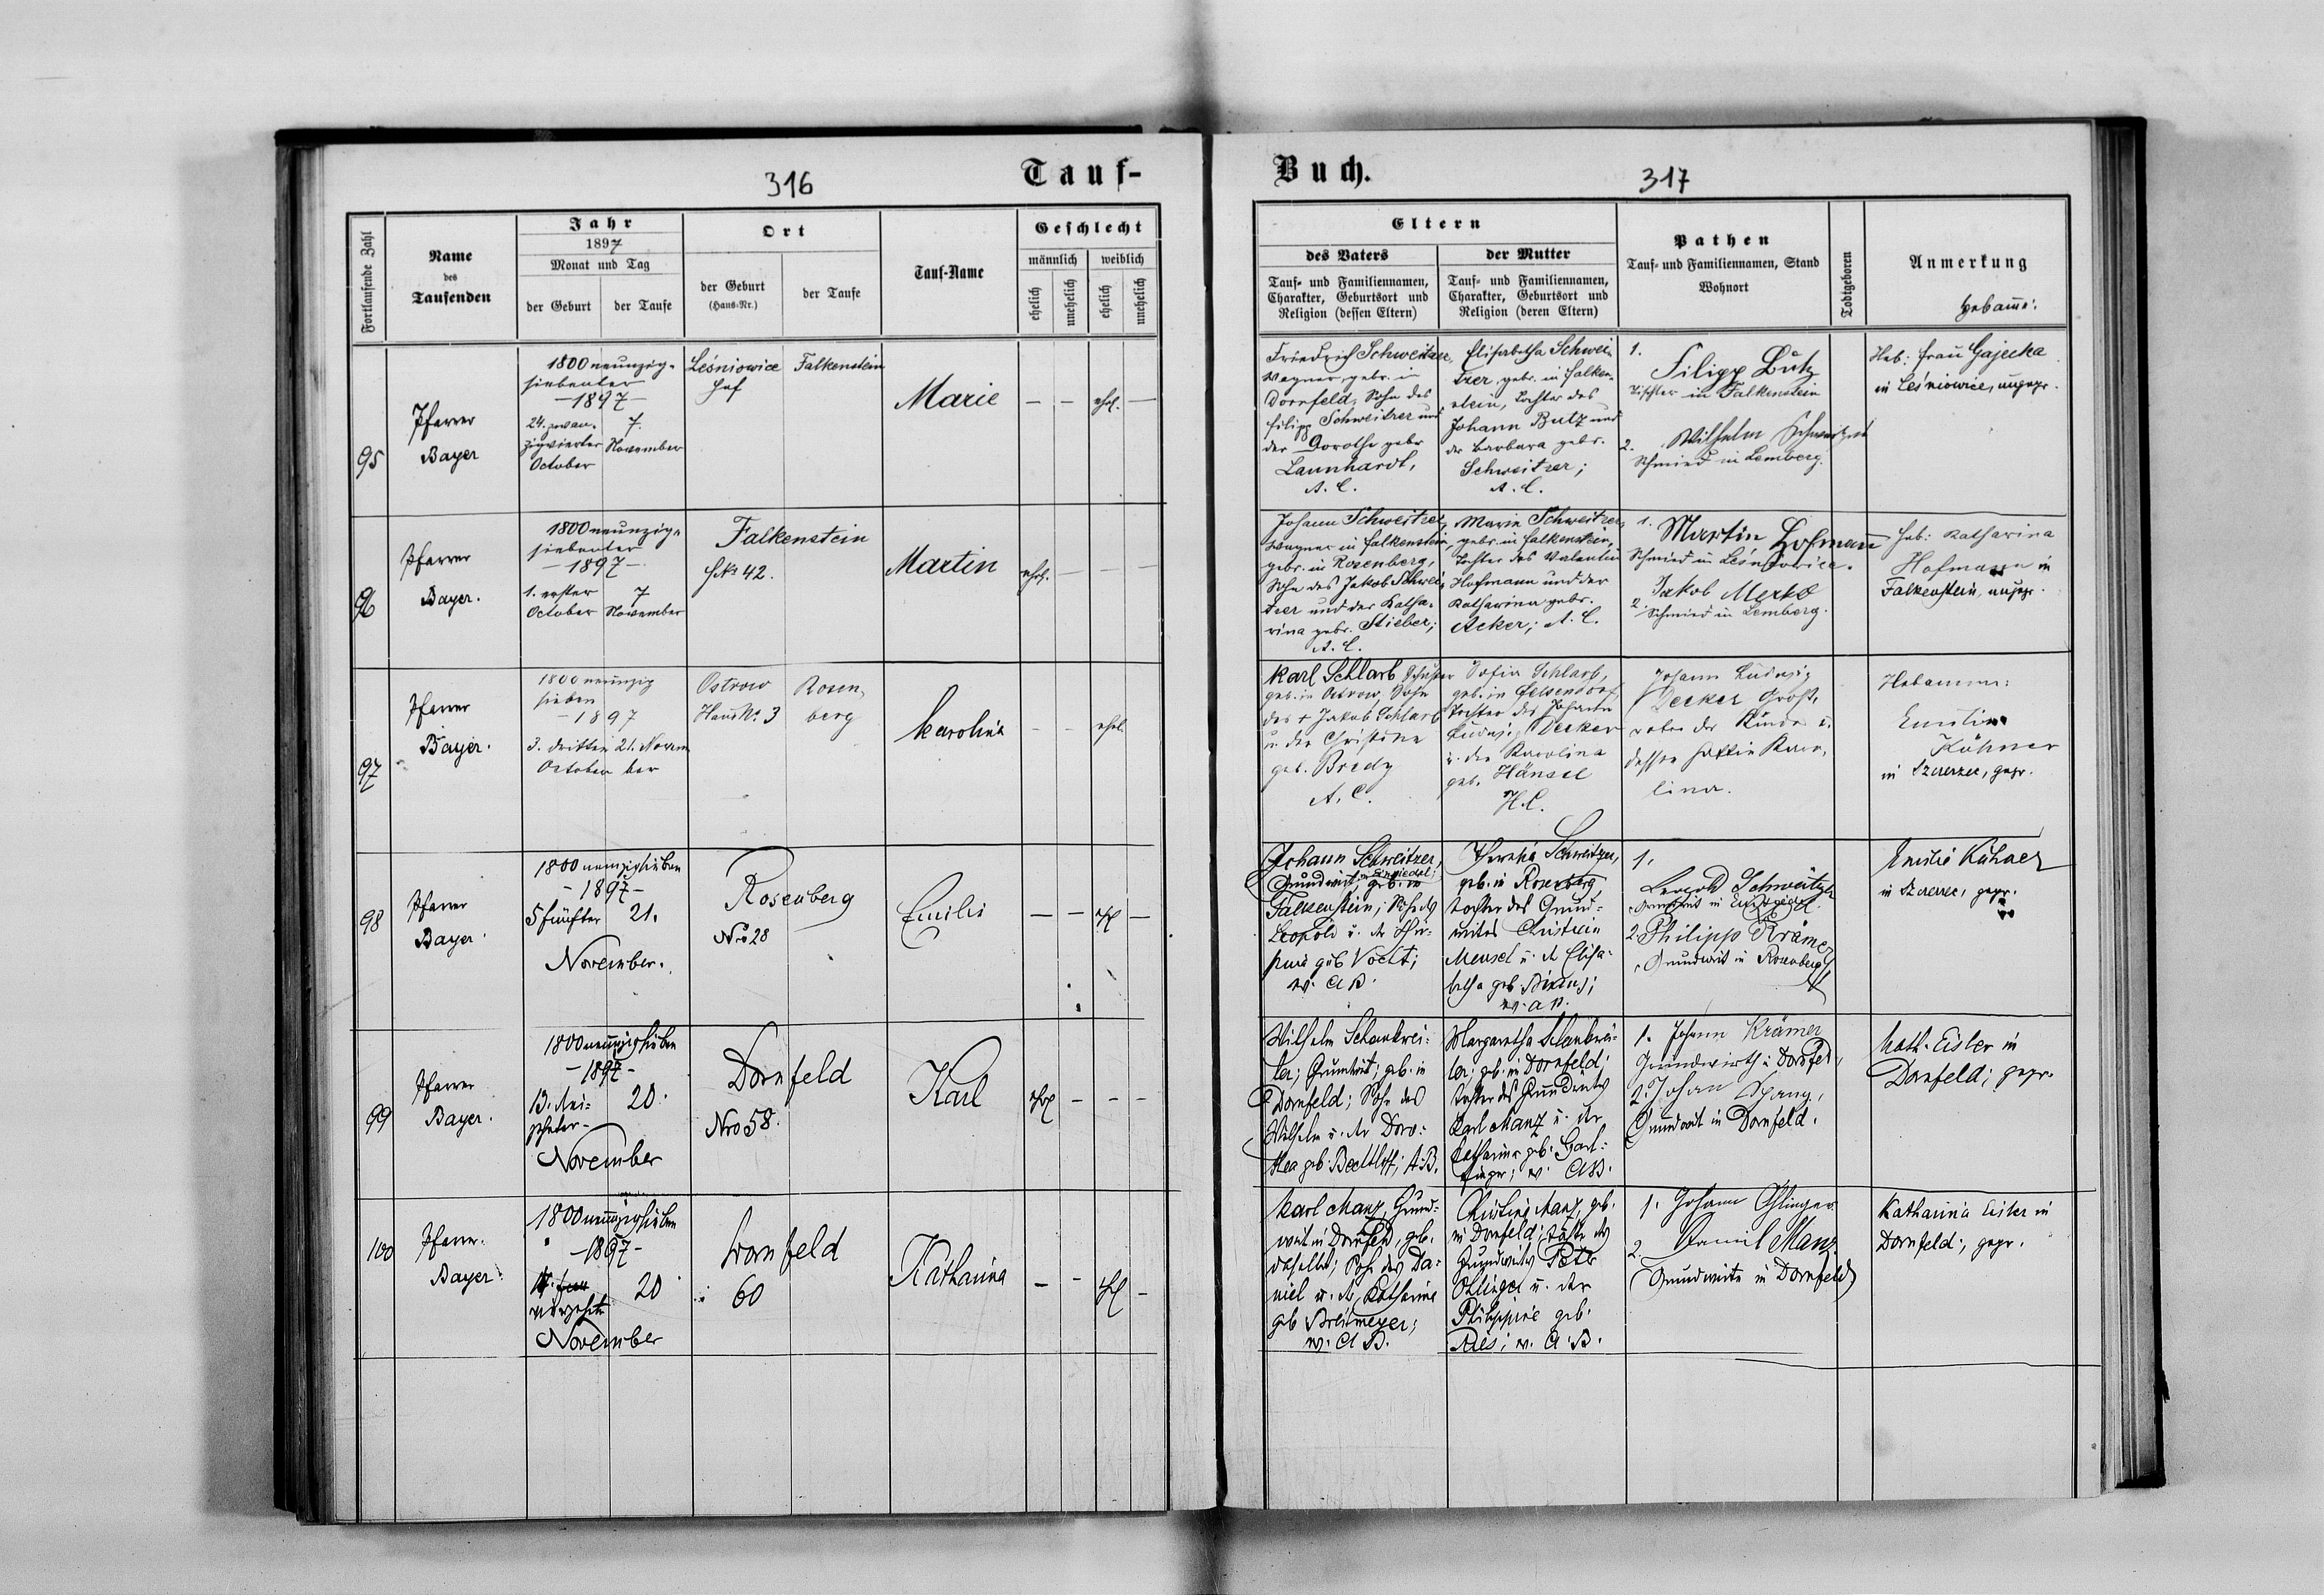 316
Tauf-
Fortlaufende Zahl
Name
des
Taufenden
Jahr
1897
Monat und Tag
der Geburt
der Taufe
Ort
der Geburt
(Haus-Nr.)
der Taufe
Tauf-Name
Geschlecht
männlich
weiblich
ehelich
unehelich
ehelich
unehelich
95
Pfarrer
Bayer
1800 neunzig-
siebenter
-1897-
24. zwan-
zigvierter
October
7.
November
Leśniowice
Hof
Falkenstein
Marie
— — ehel. —
96
Pfarrer
Bayer.
1800 neunzig-
siebenter
-1897-
1. erster
October
7
November
Falkenstein
HNr 42.
Martin
ehel. — — —
97
Pfarrer
Bayer.
1800 neunzig
sieben
-1897
3. dritten
October
21. Novem
ber
Ostrow
Haus No. 3
Rosen-
berg
Karolina
— — ehel.
98
Pfarrer
Bayer
1800 neunzigsieben
-1897-
5 fünfter
21.
November.
Rosenberg
Nro 28
Emilie
— — ehel —
99
Pfarrer
Bayer.
1800 neunzigsieben
-1897-
13. drei-
zehnter-
20.
November
Dornfeld
Nro 58.
Karl
ehel — — —
100
Pfarrer
Bayer.
1800 neunzigsieben
-1897-
vierzehnter
20
November
Dornfeld
60
Katharina
— — ehel —
Buch.
317
Eltern
des Vaters
Tauf- und Familiennamen,
Charakter, Geburtsort und
Religion (dessen Eltern)
der Mutter
Tauf- und Familiennamen,
Charakter, Geburtsort und
Religion (deren Eltern)
Pathen
Tauf- und Familiennamen, Stand
Wohnort
Todtgeboren
Anmerkung
Hebamme:
Friedrich Schweitzer,
Wagner gebr. in
Dornfeld, Sohn des
Filipp Schweitzer und
der Dorothe gebr
Launhardt,
A. C.
Elisabetha Schwei-
tzer gebr. in Falken-
stein, Tochter des
Johann Butz und
der Barbara gebr.
Schweitzer;
A. C.
1.
Filipp Butz
Tischler in Falkenstein
2. Wilhelm Schweitzer
Schmied in Lemberg.
Heb: Frau Gajecka
in Leśniowice, ungepr.
Johann Schweitzer,
Wagner in Falkenstein,
gebr. in Rosenberg,
Sohn des Jakob Schwei-
tzer und der Katha-
rina gebr. Stieber;
A. C.
Marie Schweitzer,
gebr. in Falkenstein,
Tochter des Valentin
Hofmann und der
Katharina gebr.
Acker; A. C.
1. Martin Hofmann
Schmied in Leśniowice.
2. Jakob Merko
Schmied in Lemberg.
Heb: Katharina
Hofmann in
Falkenstein, ungepr.
Karl Schlarb Schuster
geb. in Ostrow, Sohn
des + Jakob Schlarb
u. der Christine
geb. Bredy
A. C.
Sofia Schlarb,
geb. in
Tochter des Johann
Ludwig Decker
u. der Karolina
geb. Hänsel
H. C.
Johann Ludwig
Decker Groß-
vater des Kindes u.
dessen Gattin Karo-
lina.
Hebamme:
Emilie
Kühner
in Szczerzec, gepr.
Johann Schweitzer,
Grundwirt, in Einsiedel; geb. in
Falkenstein; Sohn des
Leopold u. der
geb Vocht;
w. A B.
Schweitzer,
geb. in Rosenberg,
Tochter des Grund-
wirtes Christian
Mensel u. der Elisa-
betha geb.
w. A B.
1.
Leopold Schweitzer
Grundwirt in Einsiedel.
2. Philipp Krämer
Grundwirt in Rosenberg
Emilie Kühner
in Szczerzec, gepr.
Wilhelm Schankwei-
ler; Grundwirt; geb. in
Dornfeld; Sohn des
Wilhelm u. der Doro-
thea geb. Bechtloff; A. B.
Margaretha Schankwei-
ler; geb. in Dornfeld;
Tochter des Grundwirts
Karl Manz u. der
Katharina geb.
w. A B.
1. Johann Krämer
Grundwirth in Dornfeld,
2. Johann
Grundwirt in Dornfeld.
Kath. Eisler in
Dornfeld; gepr.
Karl Manz, Grund-
wirt in Dornfeld, geb.
daselbst; Sohn des Da-
niel u. der Katharina
geb Breitmeyer;
w. A B.
Christine Manz, geb.
in Dornfeld; Tochter des
Grundwirtes Peter
Ohlinger u. der
Philippine geb.
Ries; w. A. B.
1. Johann Ohlinger
2. Daniel Manz
Grundwirte in Dornfeld
Katharina Eisler in
Dornfeld; gepr.